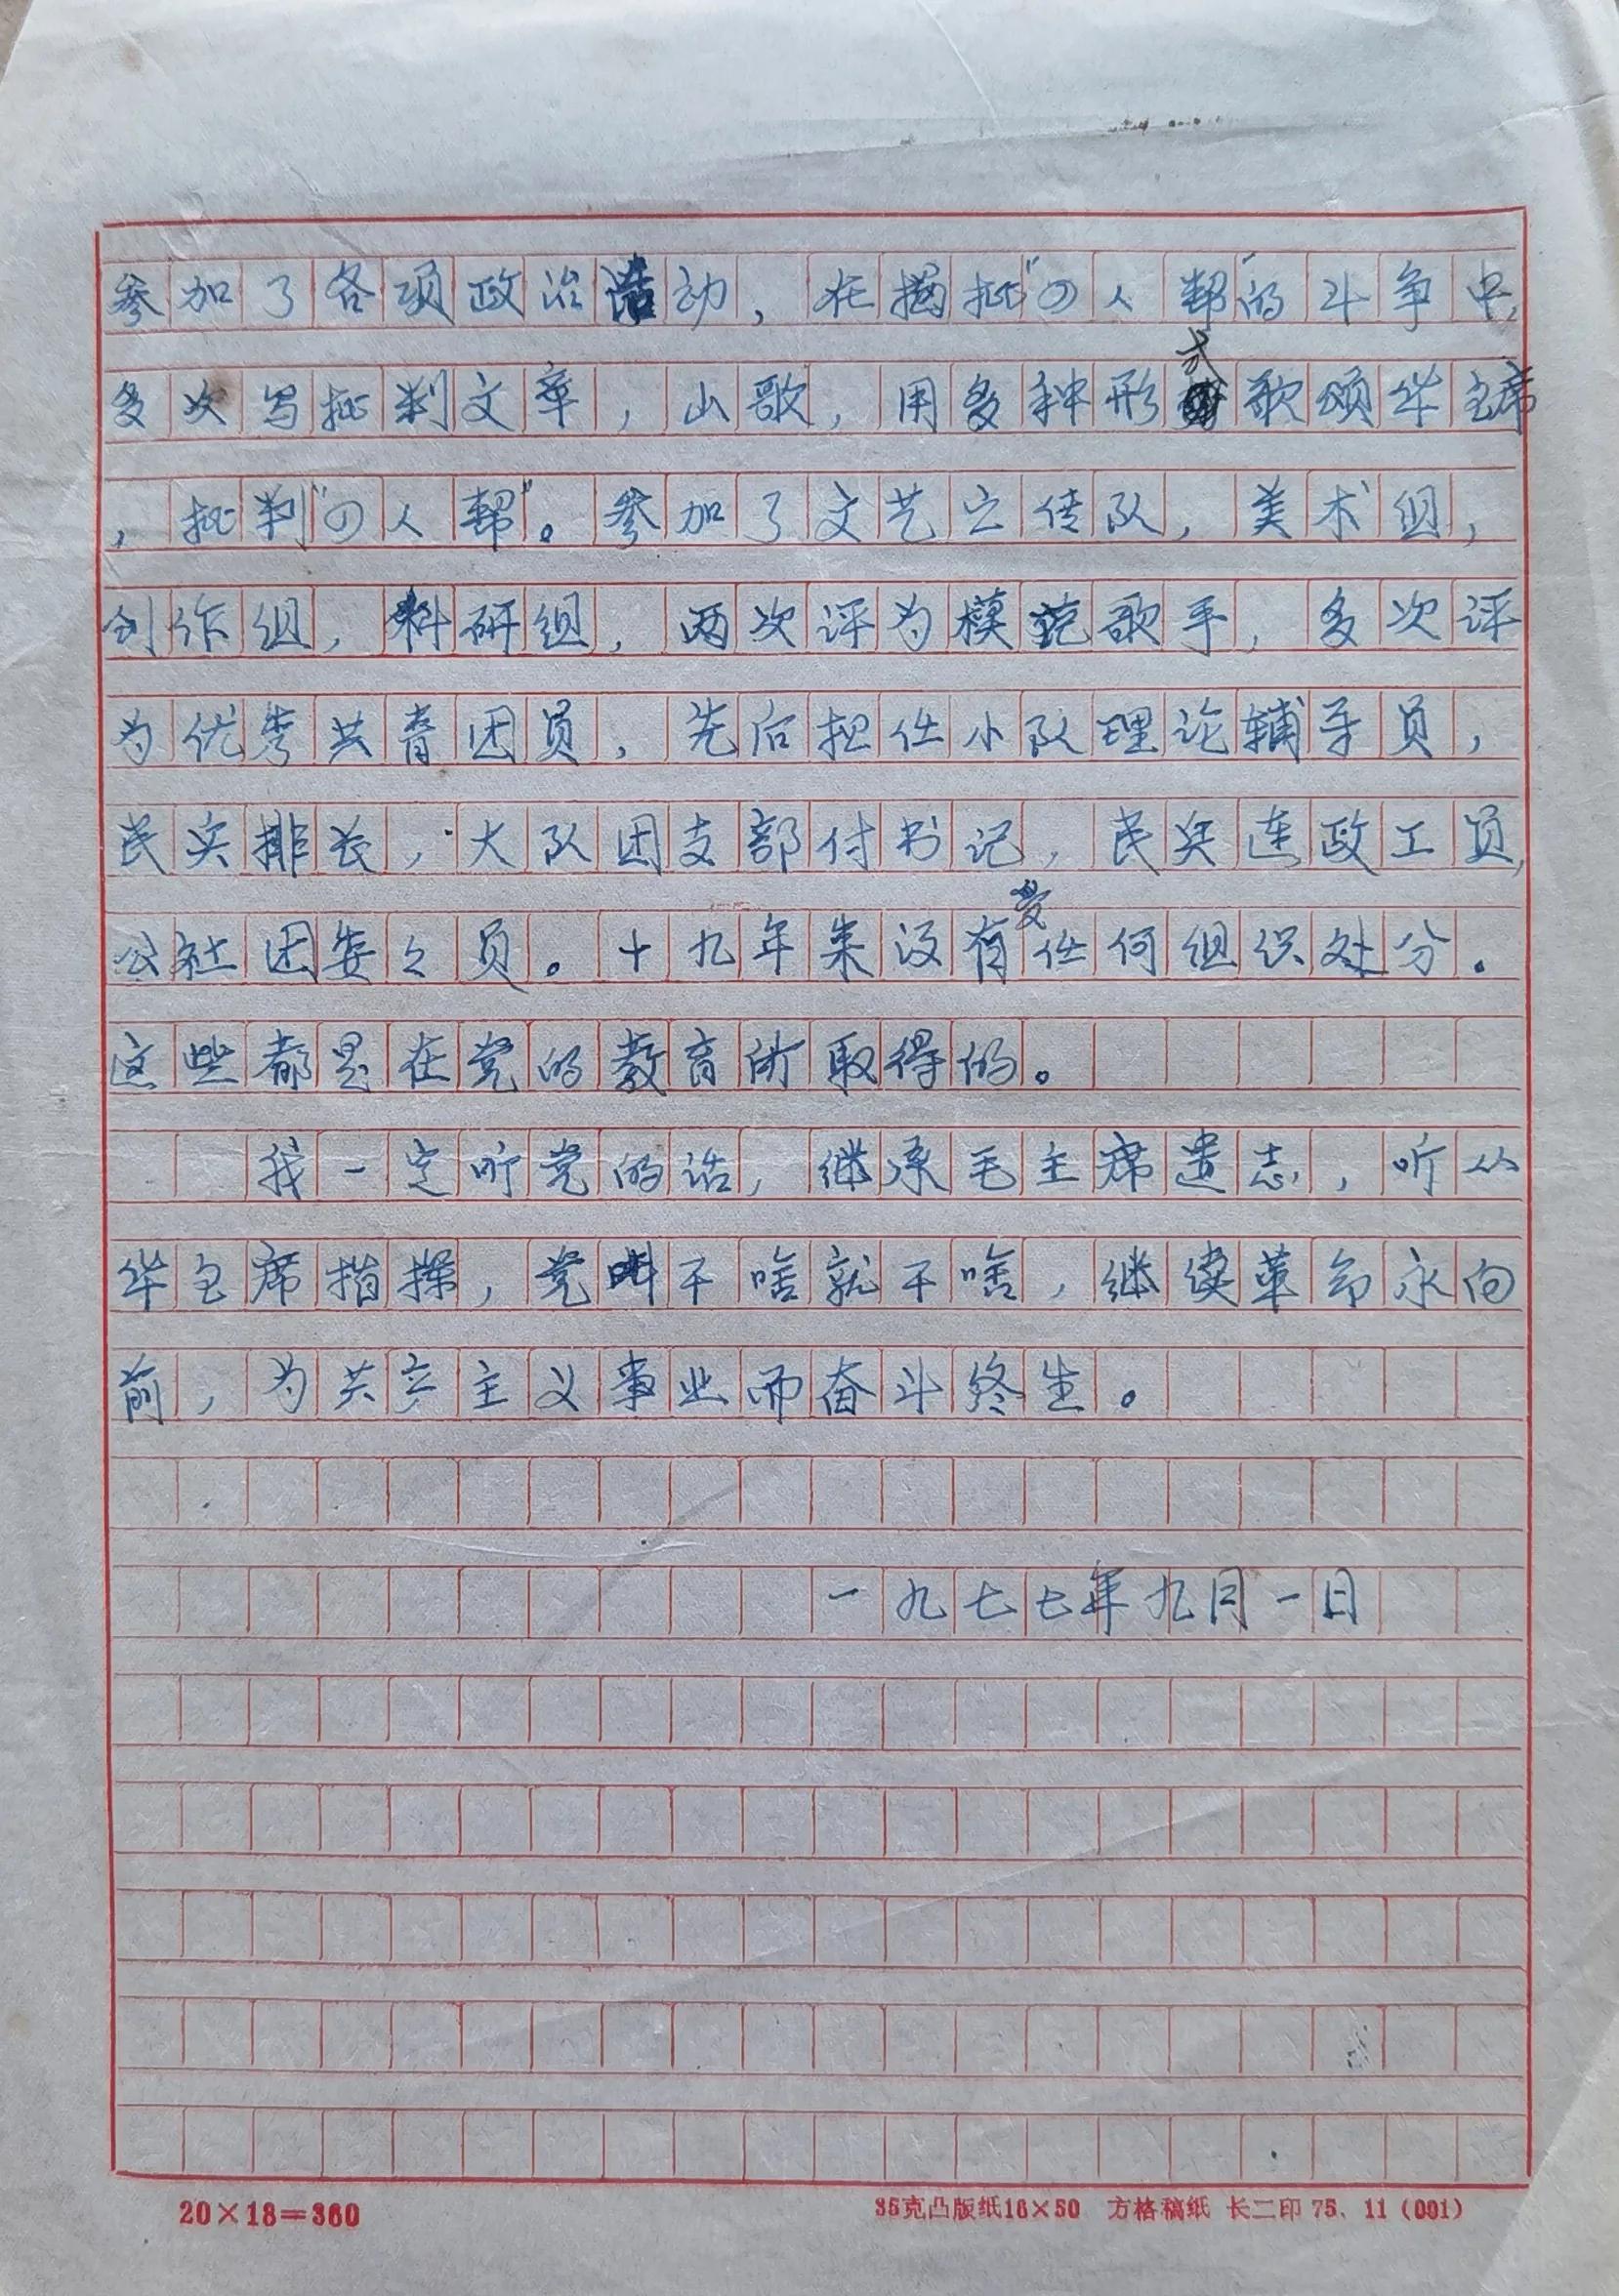 参加了各项政治活动，在揭批“四人帮”的斗争中，
多次写批判文章，山歌，用多种形式歌颂华主席
，批判“四人帮”。参加了文艺宣传队，美术组，
创作组，科研组，两次评为模范歌手，多次评
为优秀共青团员，先后担任小队理论辅导员，
民兵排长，大队团支部付书记，民兵连政工员，
公社团委々员。十九年来没有受任何组织处分。
这些都是在党的教育所取得的。
我一定听党的话，继承毛主席遗志，听从
华主席指挥，党叫干啥就干啥，继续革命永向
前，为共产主义事业而奋斗终生。
一九七七年九月一日
20×18=360
35克凸版纸16×50 方格稿纸 长二印 75．11（001）